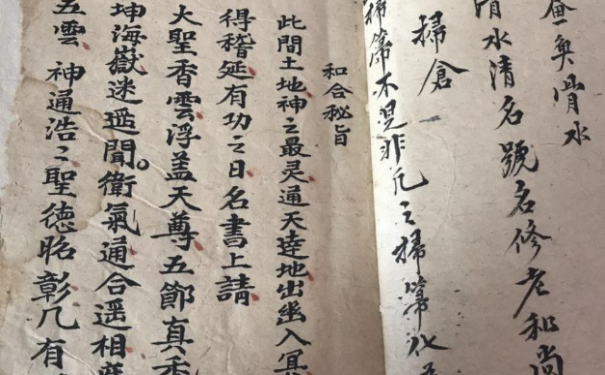 奐骨水
清水清名號名修老和尚
掃倉
掃箒不是非凡之掃箒化
和合秘旨
此間土地神之最灵通天達地出幽入冥
得稽延有功之日名書上請
大聖香雲浮盖天尊五節真香
坤海嶽迷聞衛氣通合遥相
五雲 神通浩〻聖德昭彰凡有